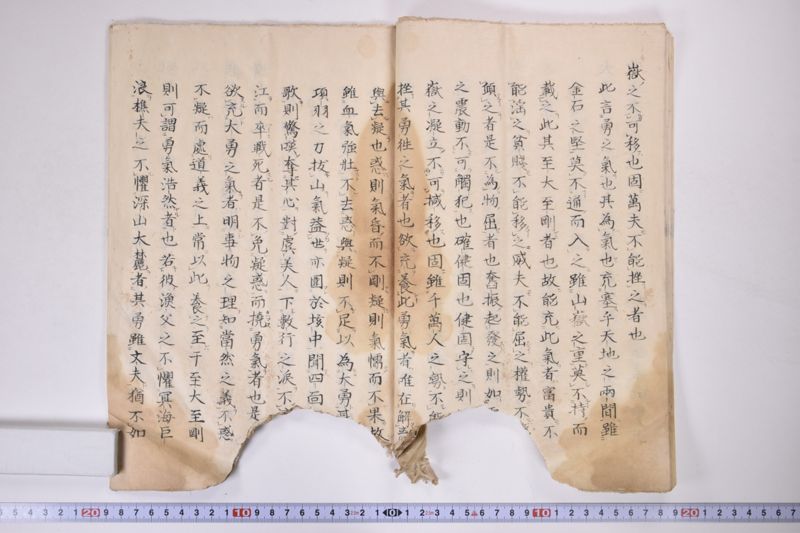 嶽之不可移也固萬夫不能挫之者也
此言勇之氣也其為氣也充塞乎天地之兩間雖
金石之堅莫不通而入之雖山嶽之重莫不持而
載之此其至大至剛者也故能充此氣者富貴不
能淫之貧賤不能移之威夫不能屈之權勢不
之者是不為物屈者也奮振起發之則如
之震動不可觸犯也確健固也健固守之則
嶽之凝立不可撼移也固雖千萬人之勢不
挫其勇徃之氣者也欲充養此勇氣者唯在解
與去疑也惑則氣昏而不剛疑則氣懾而不果故
雖血氣強壯不去惑與疑則不足以為大勇
項羽之力拔山氣蓋世亦圍於垓中聞四面
歌則驚嘆奪其心對虞美人下數行之淚不
江而卒戰死者是不免疑惑而撓勇氣者也是
欲充大勇之氣者明事物之理知當然之義不惑
不疑而處道義之上常以此養之至于至大至剛
則可謂勇氣浩然者也若彼漁父之不懼冥海巨
浪樵夫之不懼深山大麓者其勇雖丈夫猶不如